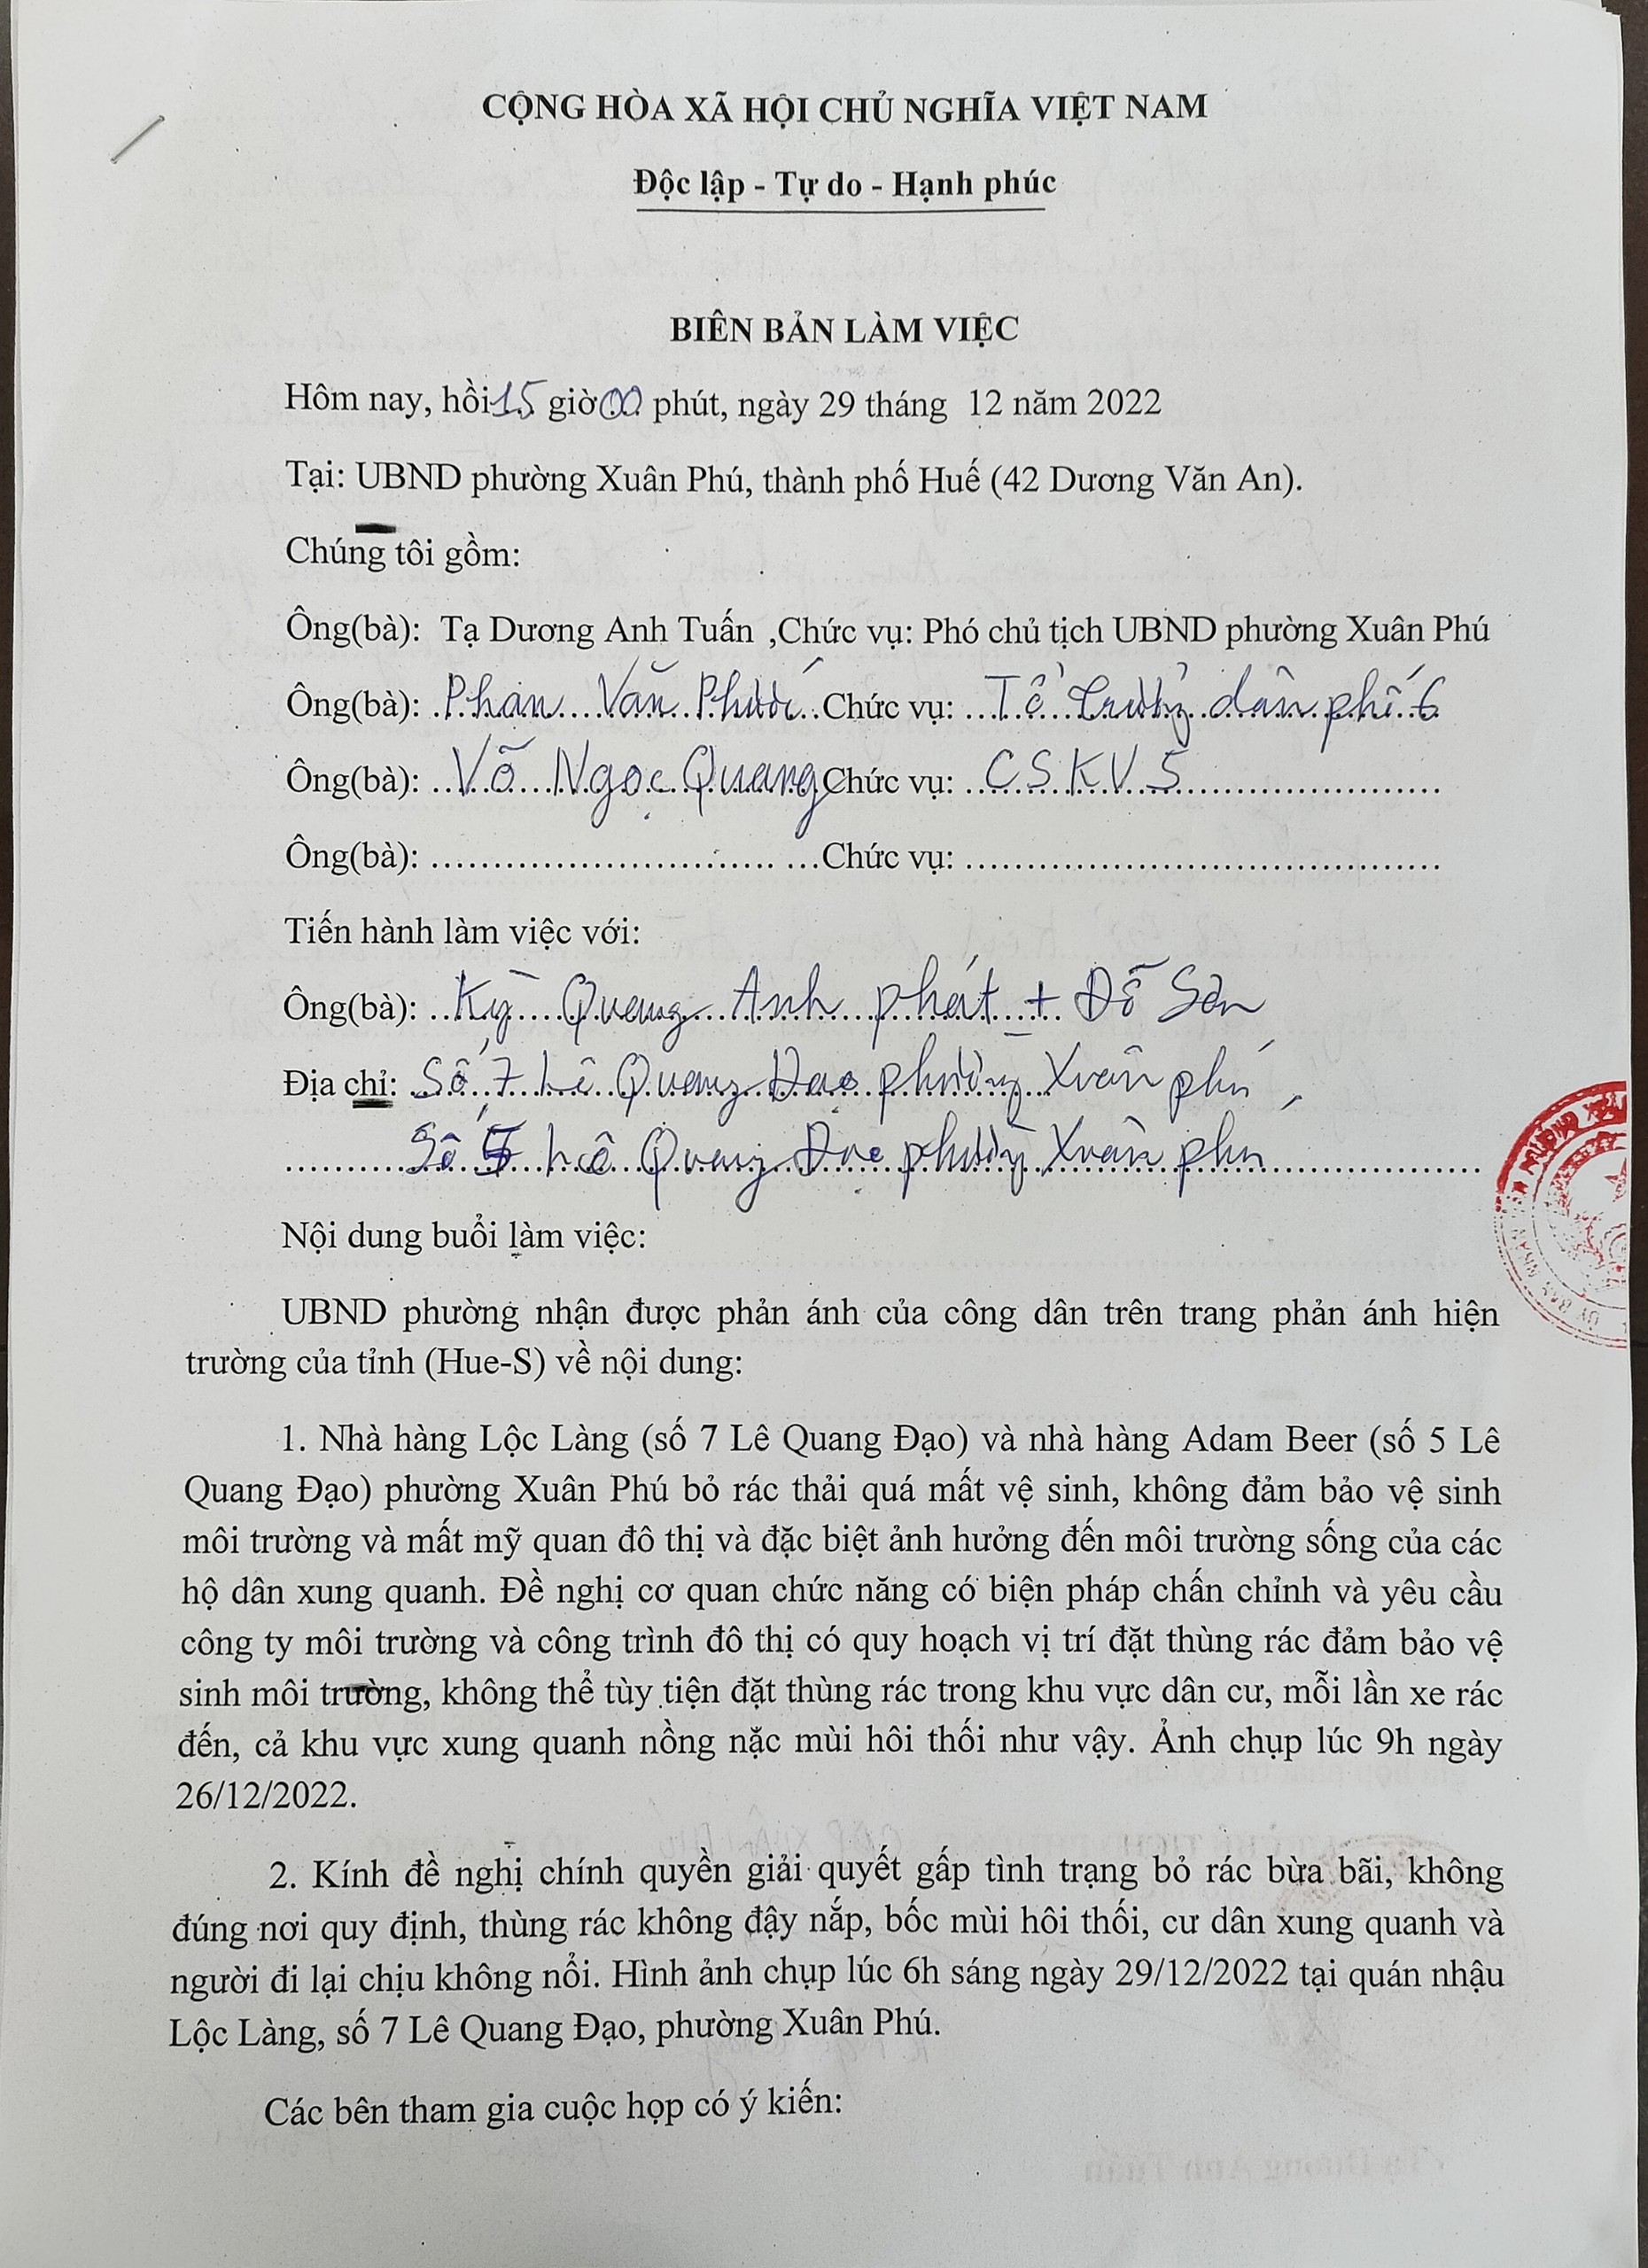 CỘNG HÒA XÃ HỘI CHỦ NGHĨA VIỆT NAM
Độc lập - Tự do - Hạnh phúc
BIÊN BẢN LÀM VIỆC
Hôm nay, hồi 15 giờ 00 phút, ngày 29 tháng 12 năm 2022
Tại: UBND phường Xuân Phú, thành phố Huế (42 Dương Văn An).
Chúng tôi gồm:
Ông(bà): Tạ Dương Anh Tuấn ,Chức vụ: Phó chủ tịch UBND phường Xuân Phú
Ông(bà): Phan Văn Phước Chức vụ: Tổ trưởng dân phố 6
Ông(bà): Võ Ngọc Quang Chức vụ: CSKV 5
Ông(bà): .............................. ...Chức vụ: ..........................................
Tiến hành làm việc với:
Ông(bà): Kỳ Quang Anh phát + Đỗ
Địa chỉ: Số 7 Lê Quang Đạo phường Xuân phú,
Số 5 Lê Quang Đạo phường Xuân phú
Nội dung buổi làm việc:
UBND phường nhận được phản ánh của công dân trên trang phản ánh hiện
trường của tỉnh (Hue-S) về nội dung:
1. Nhà hàng Lộc Làng (số 7 Lê Quang Đạo) và nhà hàng Adam Beer (số 5 Lê
Quang Đạo) phường Xuân Phú bỏ rác thải quá mất vệ sinh, không đảm bảo vệ sinh
môi trường và mất mỹ quan đô thị và đặc biệt ảnh hưởng đến môi trường sống của các
hộ dân xung quanh. Đề nghị cơ quan chức năng có biện pháp chấn chỉnh và yêu cầu
công ty môi trường và công trình đô thị có quy hoạch vị trí đặt thùng rác đảm bảo vệ
sinh môi trường, không thể tùy tiện đặt thùng rác trong khu vực dân cư, mỗi lần xe rác
đến, cả khu vực xung quanh nồng nặc mùi hôi thối như vậy. Ảnh chụp lúc 9h ngày
26/12/2022.
2. Kính đề nghị chính quyền giải quyết gấp tình trạng bỏ rác bừa bãi, không
đúng nơi quy định, thùng rác không đậy nắp, bốc mùi hôi thối, cư dân xung quanh và
người đi lại chịu không nổi. Hình ảnh chụp lúc 6h sáng ngày 29/12/2022 tại quán nhậu
Lộc Làng, số 7 Lê Quang Đạo, phường Xuân Phú.
Các bên tham gia cuộc họp có ý kiến: